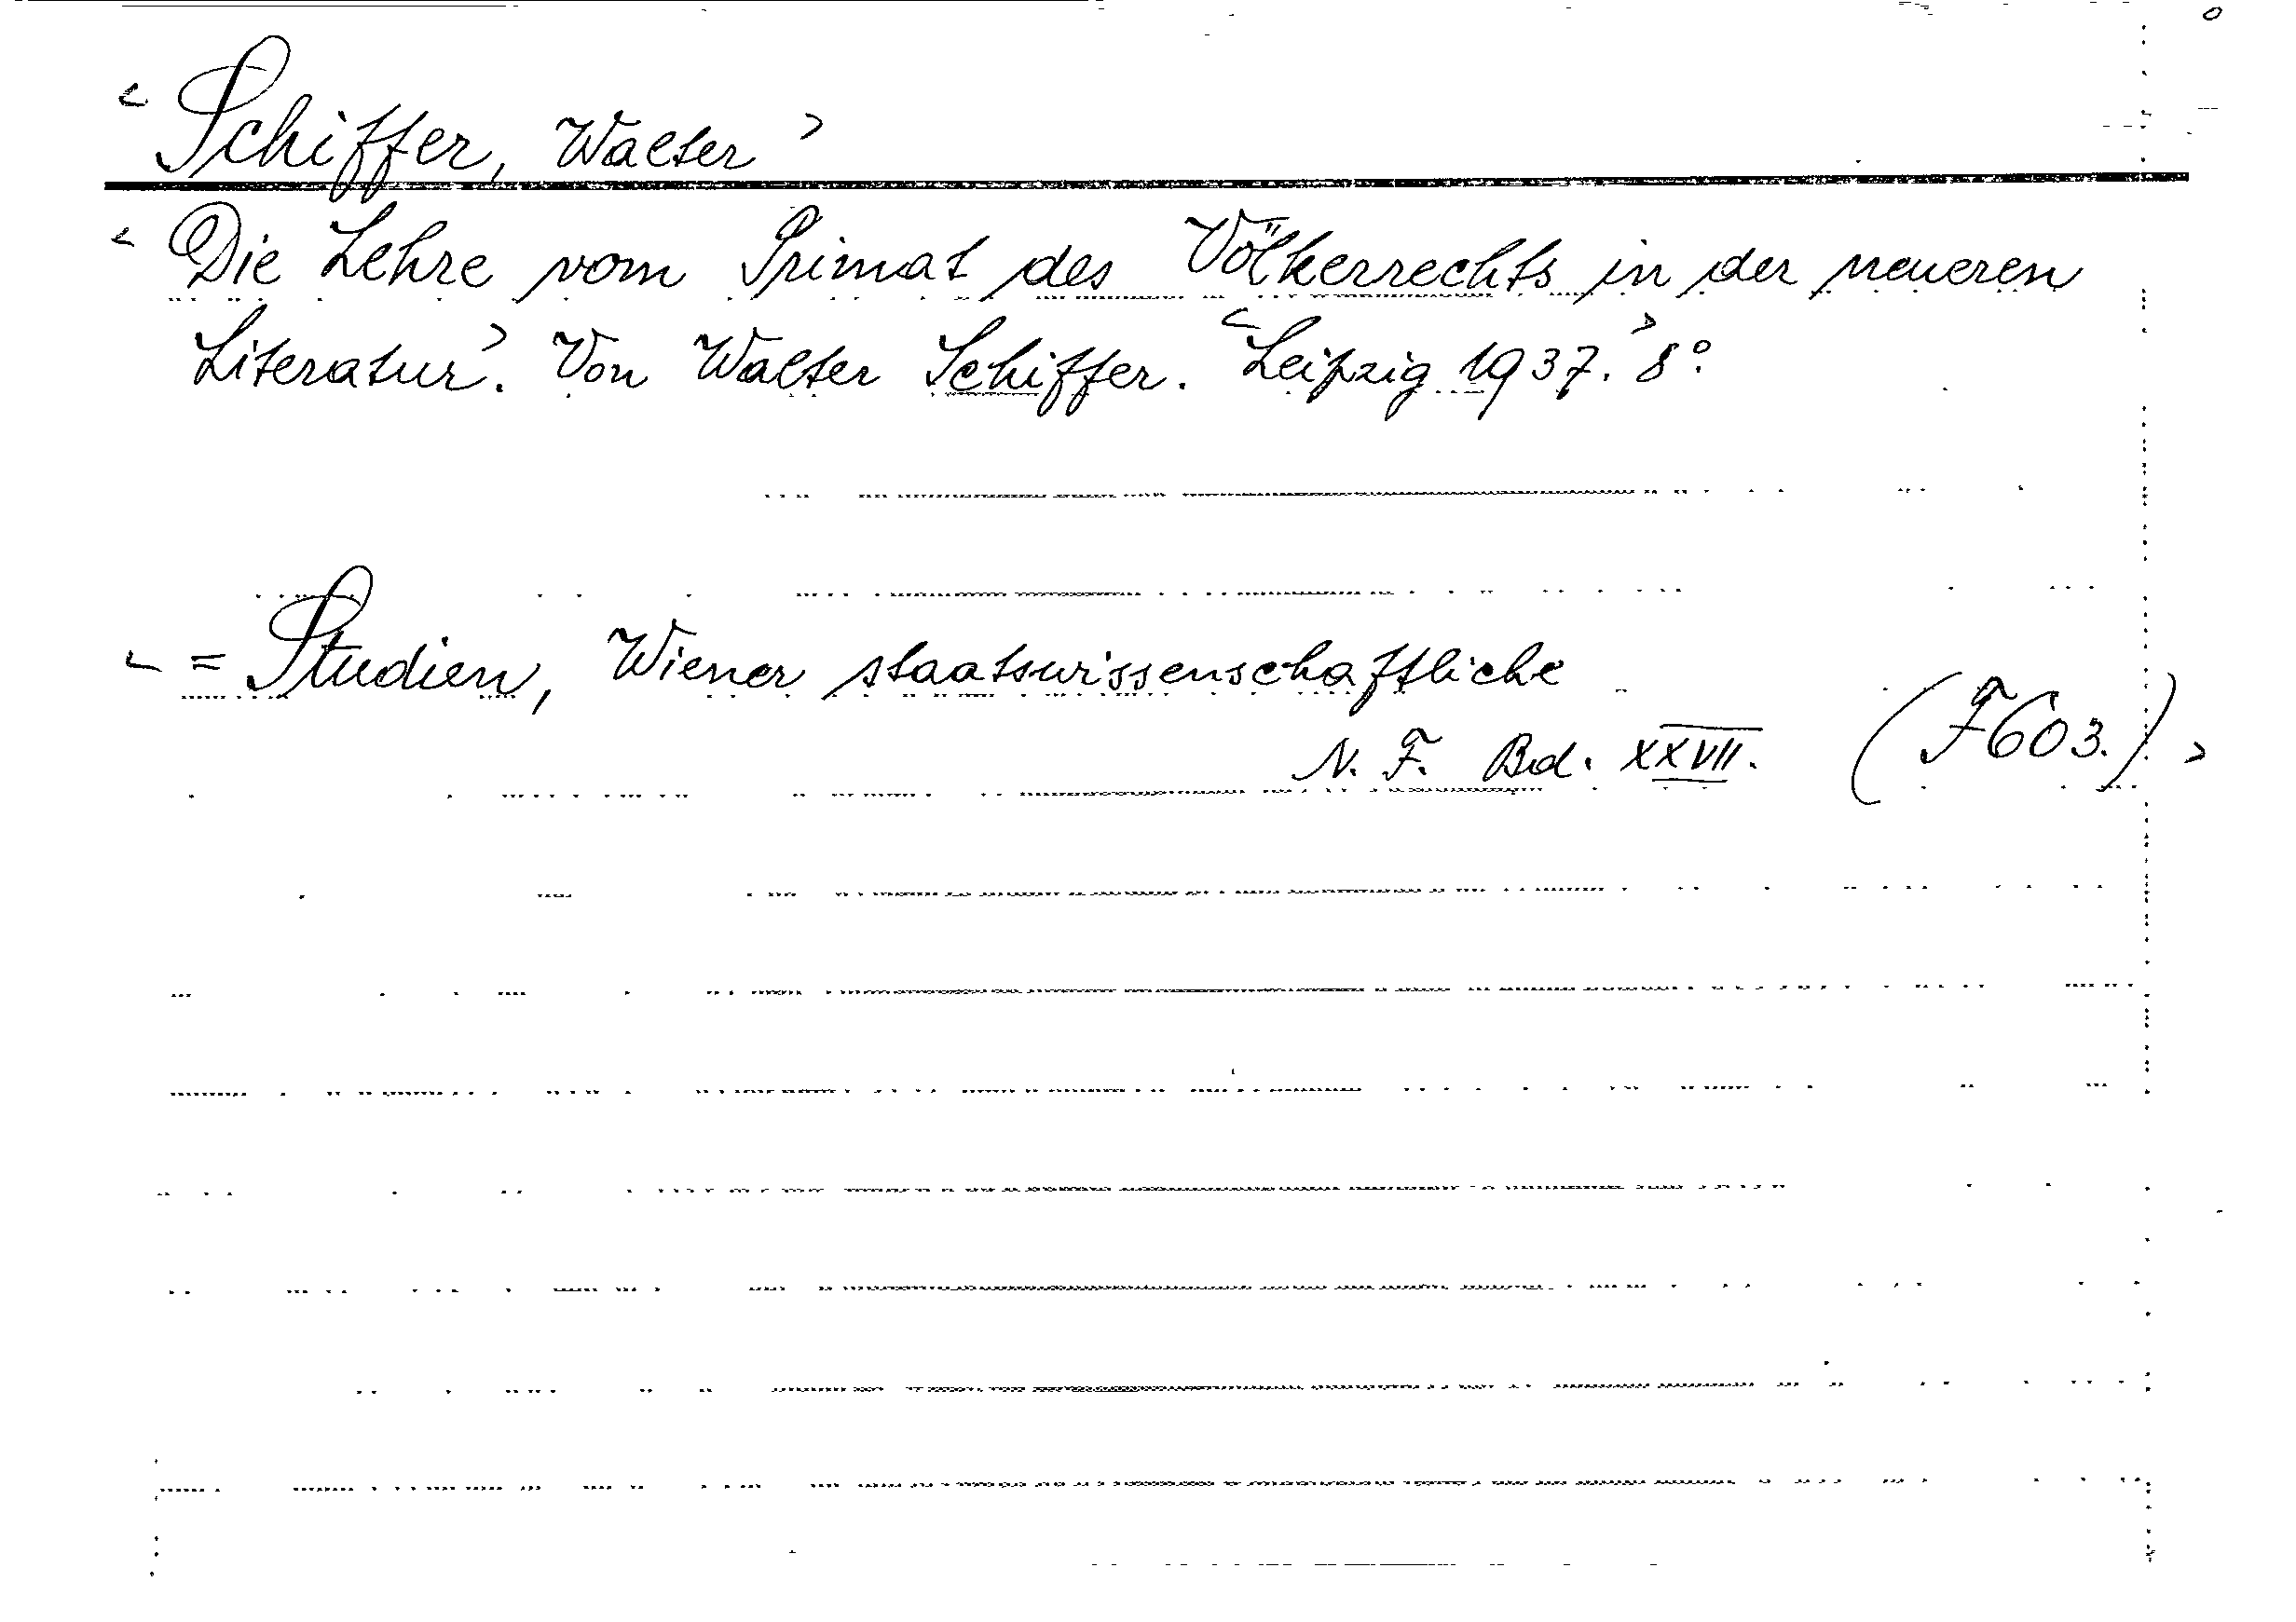 < Schiffer, Walter >
< Die Lehre vom Primat des Völkerrechts in der neueren
Literatur>. Von Walter Schiffer. <Leipzig 1937.> 8°.
< = Studien, Wiener staatswissenschaftliche
N. F. Bd. XXVII. (F603.) >